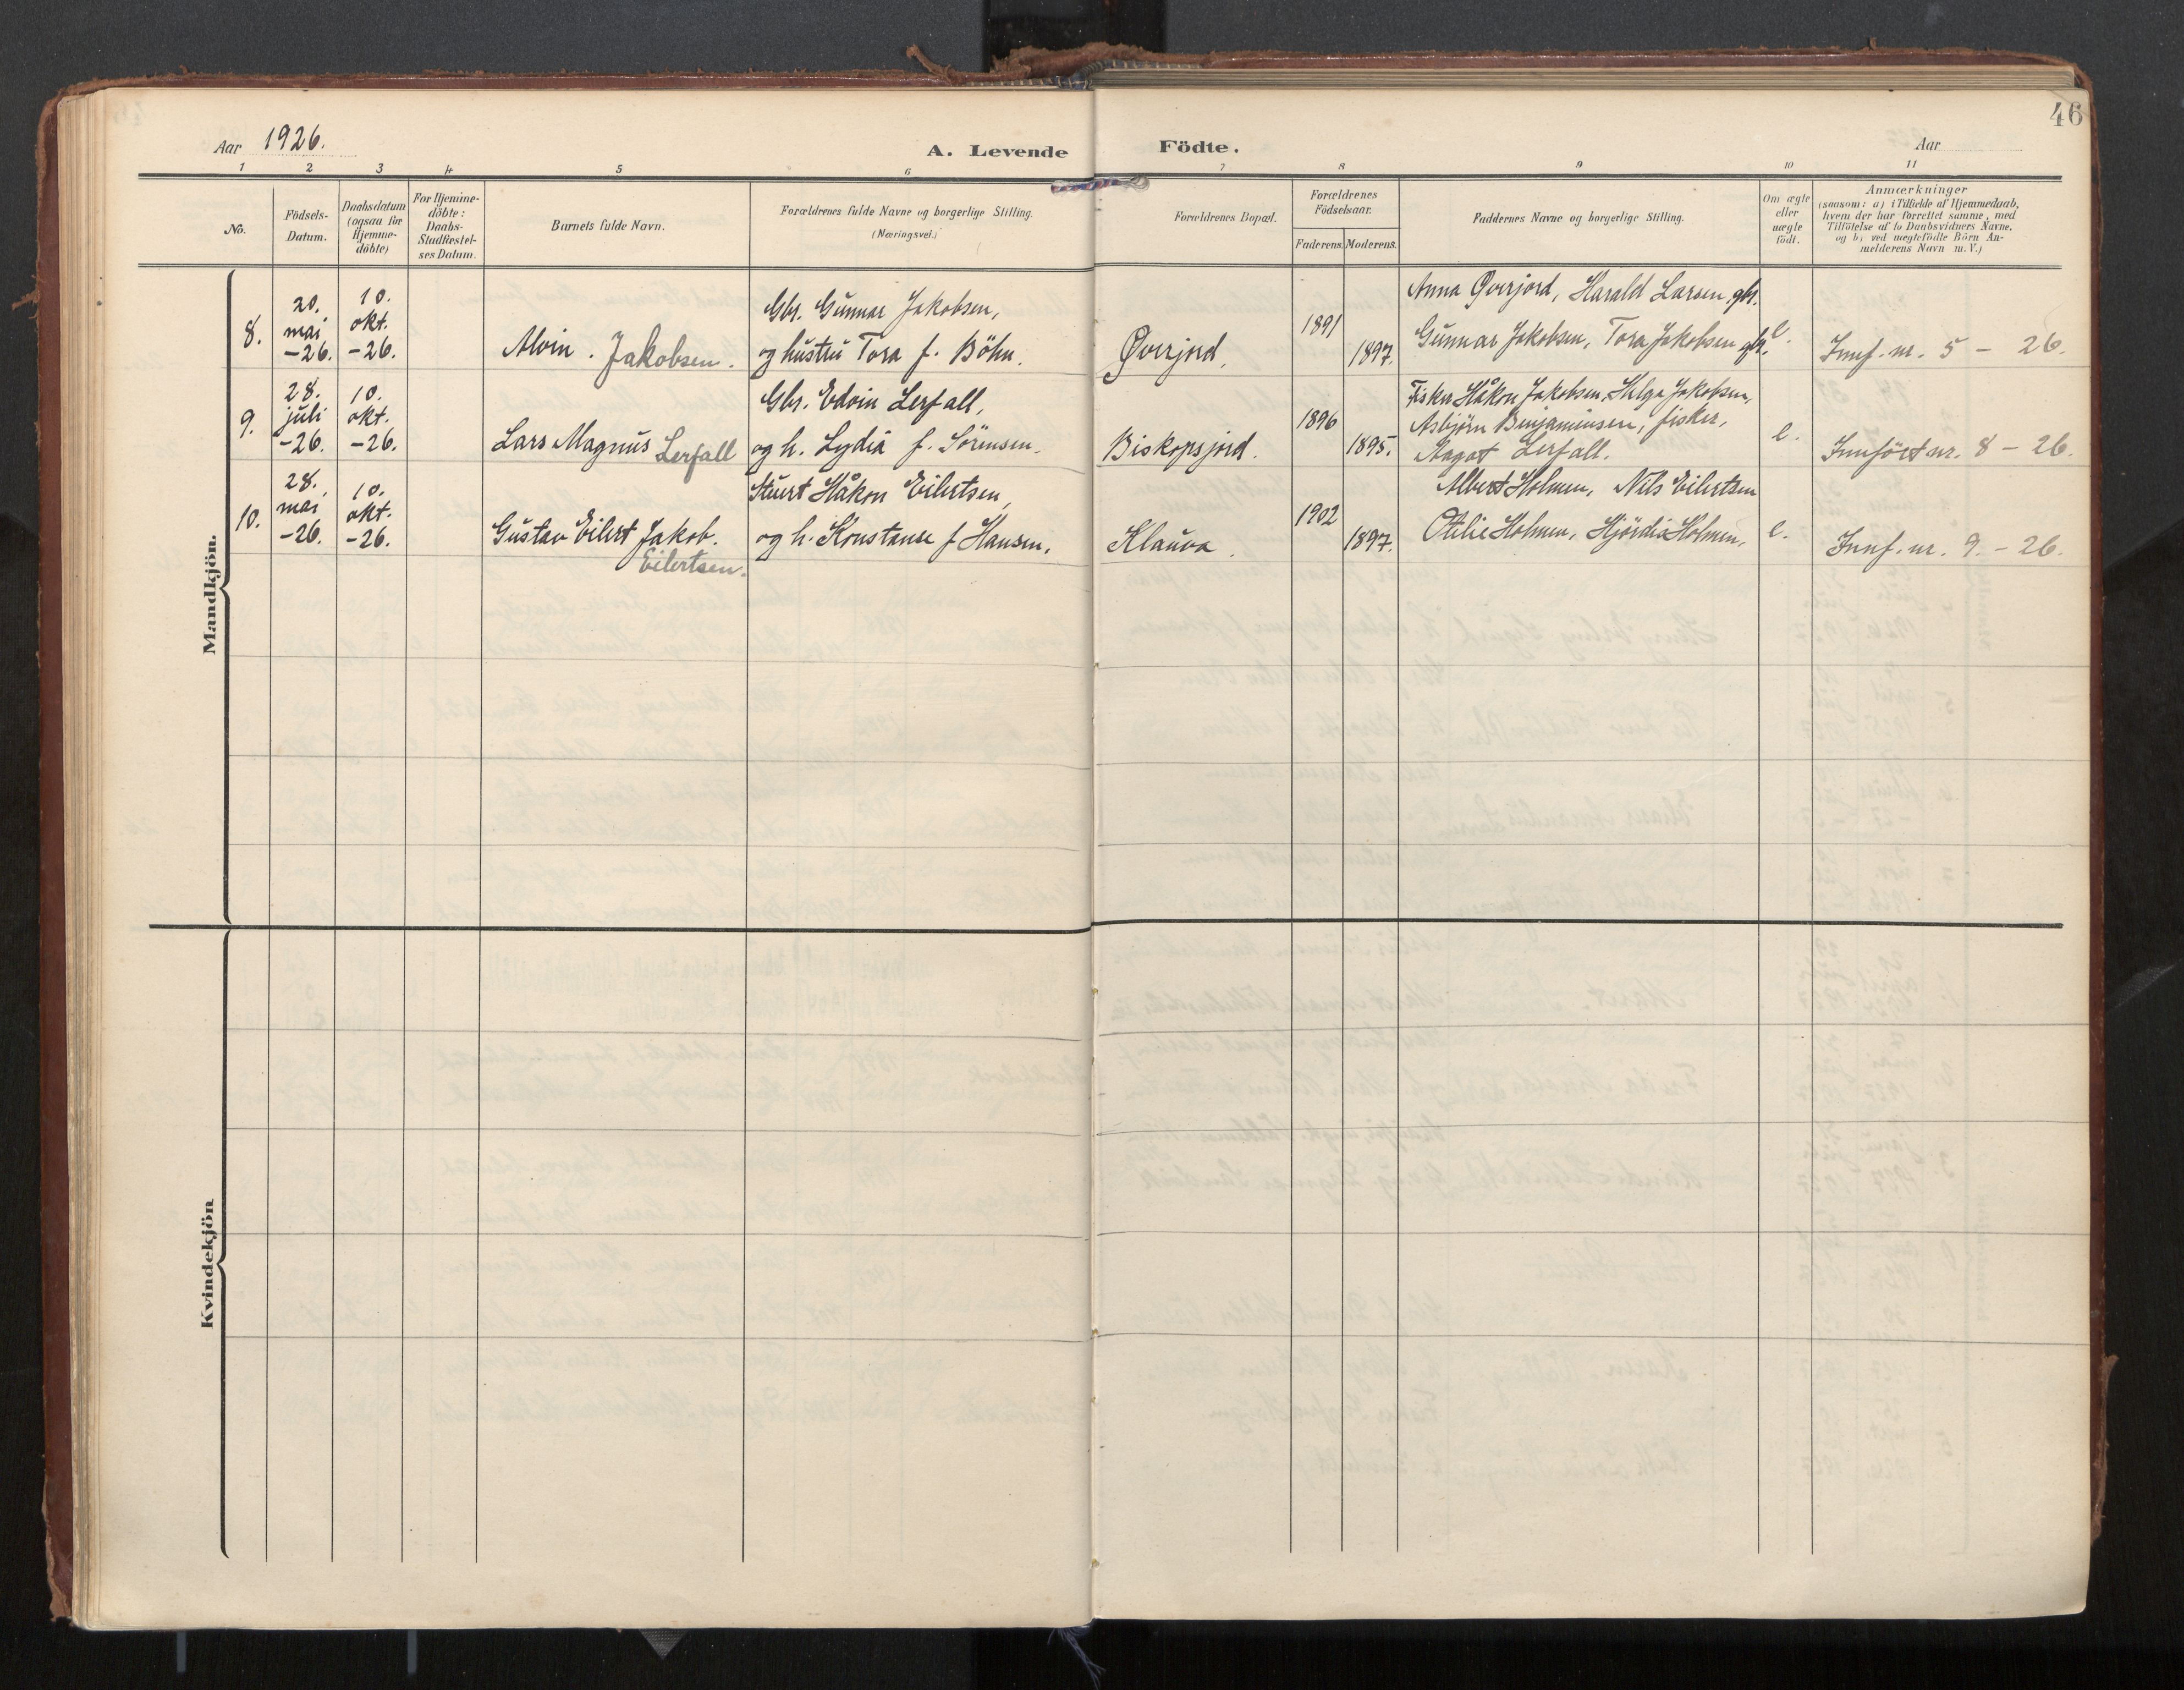 46
Aar 1926.
A. Levende Födte.
Aar
1 2 3 4 5 6 7 8 9 10 11
No.
Födsels-
Datum.
Daabsdatum
(ogsaa for
Hjemme-
döbte)
For Hjemme-
döbte:
Daabs-
Stadfæstel-
ses Datum.
Barnets fulde Navn.
Forældrenes fulde Navne og borgerlige Stilling.
(Næringsvei.)
Forældrenes Bopæl.
Forældrenes
Födselsaar.
Faderens. Moderens.
Faddernes Navne og borgerlige Stilling.
Om ægte
eller
uægte
födt.
Anmærkninger
(saasom: a) i Tilfælde af Hjemmedaab,
hvem der har forrettet samme, med
Tilföielse af to Daabsvidners Navne.
og b) ved uægtefödte Börn An-
melderens Navn m. V.)
Mandkjön.
8.
20.
mai
-26.
10.
okt.
-26.
Alvin. Jakobsen.
Gbr. Gunnar Jakobsen,
og hustru Tora f. Böhn.
Øverjord.
1891
1897.
Anna Øverjord, Harald Larsen, gbr.
Gunnar Jakobsen, Tora Jakobsen gbr.
e.
Innf. nr. 5 - 26.
9.
28.
juli
-26.
10.
okt.
-26.
Lars Magnus Lerfall
Gbr. Edvin Lerfall,
og h. Lydia f. Sörensen.
Biskopsjord.
1896
1895.
Fisker Håkon Jakobsen, Helga Jakobsen,
Asbjörn Benjaminsen, fisker,
Aagot Lerfall.
e.
Innfört nr. 8 - 26.
10.
28.
mai
-26.
10.
okt.
-26.
Gustav Eilert Jakob.
Eilertsen.
Stuert Håkon Eilertsen,
og h. Konstanse f Hansen.
Klauva.
1902
1897.
Albert Holmen, Nils Eilertsen
Otelie Holmen, Hjördis Holmen,
e.
Innf. nr. 9. - 26.
Kvindekjön